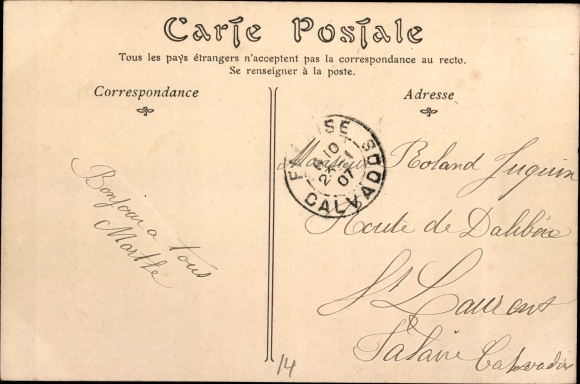 Carte Postale
Tous les pays étrangers n'acceptent pas la correspondance au recto.
Se renseigner à la poste.
Correspondance
Adresse
FALAISE
10
25
07
CALVADOS
Monsieur Roland Juquin
Route de
St Laurent
Falaise Calvados
Bonjour a tous
Marthe
14